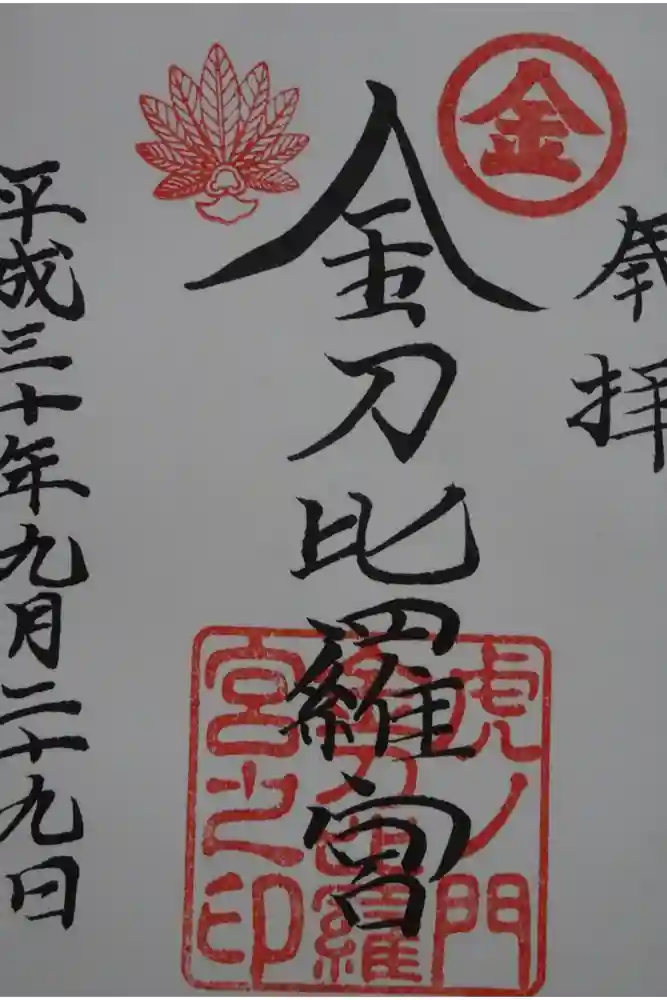 奉拝
金
金刀比羅宮
虎ノ門
金刀比羅
宮之印
平成三十年九月二十九日